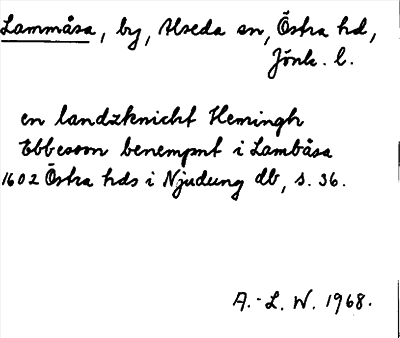 Lammåsa, by, Alseda sn, Östra hd,
Jönk. l.
en landzknicht Hemingh
Ebbeson benempnt i Lambåsa
1602 Östra hds i Njudung db, s. 36.
A.-L. W. 1968.